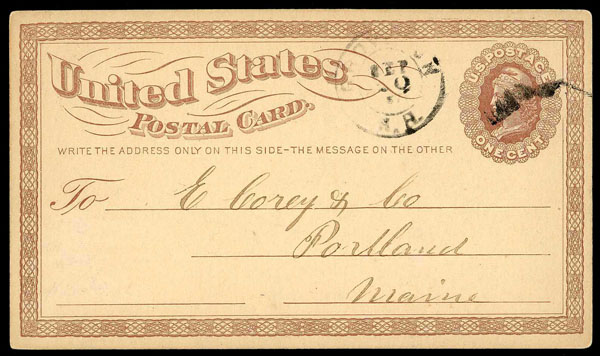 United States
POSTAL CARD.
U.S. POSTAGE
ONE CENT
WRITE THE ADDRESS ONLY ON THIS SIDE–THE MESSAGE ON THE OTHER
To E Corey & Co
Portland
Maine